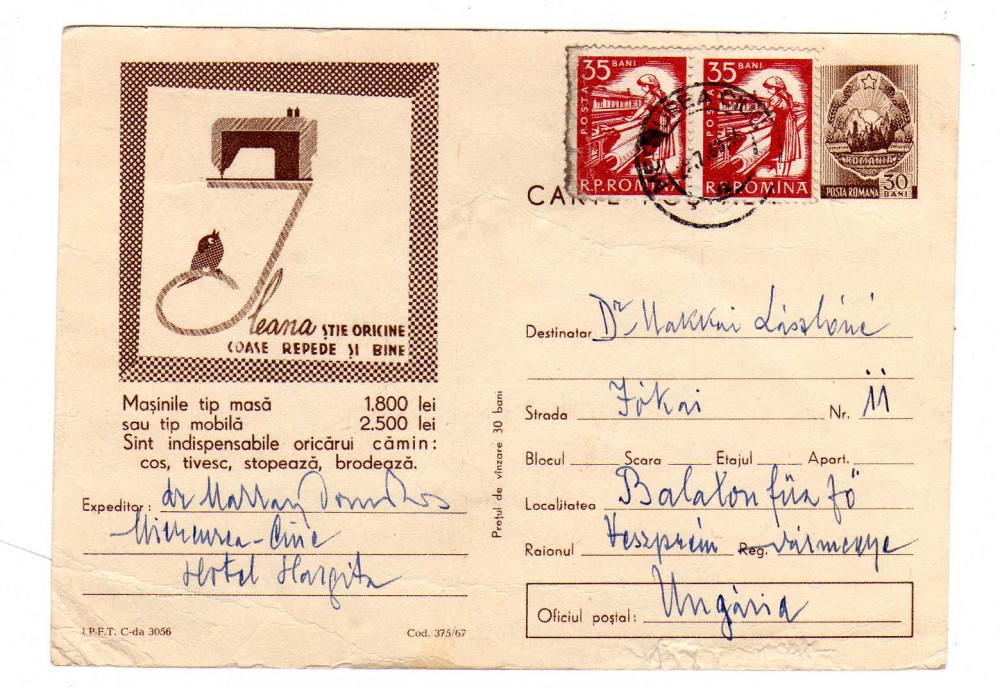 35 BANI
POSTA
R.P. ROMINA
35 BANI
POSTA
R.P. ROMINA
ROMANIA
POSTA ROMANA 30 BANI
CARTE
Ileana ȘTIE ORICINE
COASE REPEDE ȘI BINE
Mașinile tip masă 1.800 lei
sau tip mobilă 2.500 lei
Sînt indispensabile oricărui cămin:
cos, tivesc, stopează, brodează.
Expeditor: dr
Miercurea-Ciuc
Hotel Hargita
I.P.F.T. C-da 3056 Cod. 375/67
Prețul de vînzare 30 bani
Destinatar Dr Makkai Lászlóné
Strada Jókai Nr. 11
Blocul Scara Etajul Apart.
Localitatea Balatonfüred
Raionul Veszprém Reg. vármegye
Oficiul poștal: Ungária